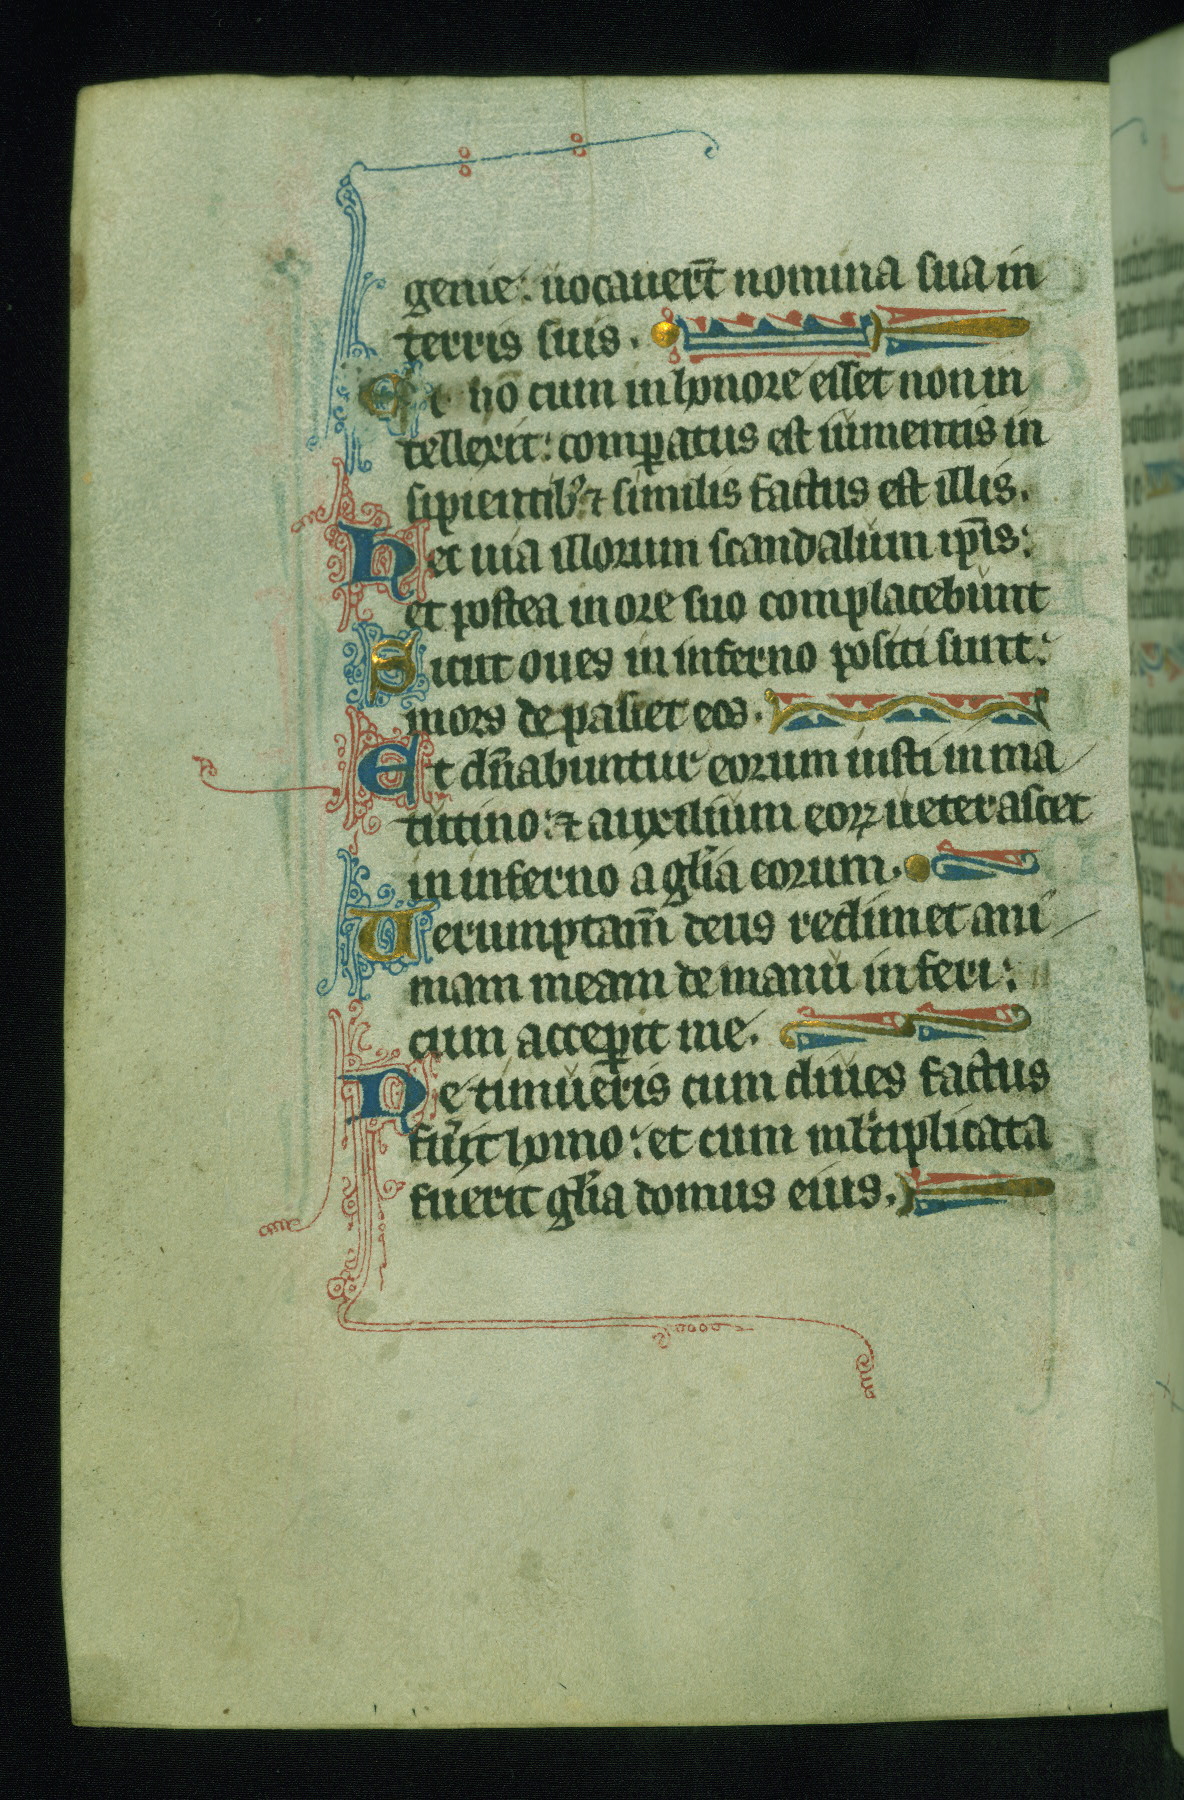 genie: uocauer̄t nomina sua in
terris suis.
Et ho cum in honore esset non in
tellexit: comꝑatus est iumentis in
sipientib⁹ ⁊ similis factus est illis.
Hec uia illorum scandalum ip̄is:
et postea in ore suo complacebunt
Sicut oues in inferno positi sunt:
mors depascet eos.
Et dn̄abuntur eorum iusti in ma
tutino: ⁊ auxilium eoꝝ ueterascet
in inferno a gl̄ia eorum.
Uerumptam̄ deus redimet ani
mam meam de manu inferi:
cum acceꝑit me.
Ne timueris cum diues factus
fu̾it homo: et cum ml̾tiplicata
fuerit gl̄ia domus eius.